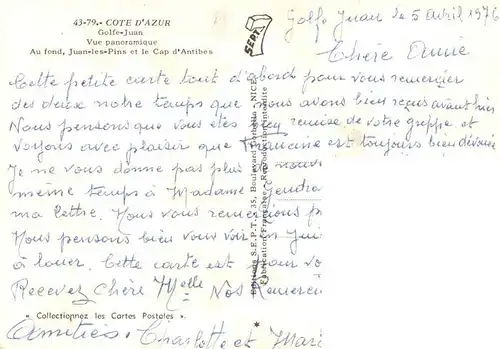 43-79.- COTE D'AZUR
Golfe-Juan
Vue panoramique
Au fond, Juan-les-Pins et le Cap d'Antibes
SEPT
Golfe Juan le 5 Avril 1976
Chère Amie
Cette petite carte tout d'abord pour vous remercier
des deux notre temps que nous avons bien reçus avant hier
Nous pensons que vous êtes remise de votre grippe et
voyons avec plaisir que Francine est toujours bien dévouée
Je ne vous donne pas plus de nouv
même temps à Madame Gendra
ma lettre. Nous vous remercions p
Nous pensons bien vous voir en Jui
à louer. Cette carte est pour vo
Recevez Chère Melle Nos Remercie
Amitiés. Charlotte et Mari
« Collectionnez les Cartes Postales »
Editions S.E.P.T. - 35, Boulevard - NICE
Fabrication Française - Reproduction interdite